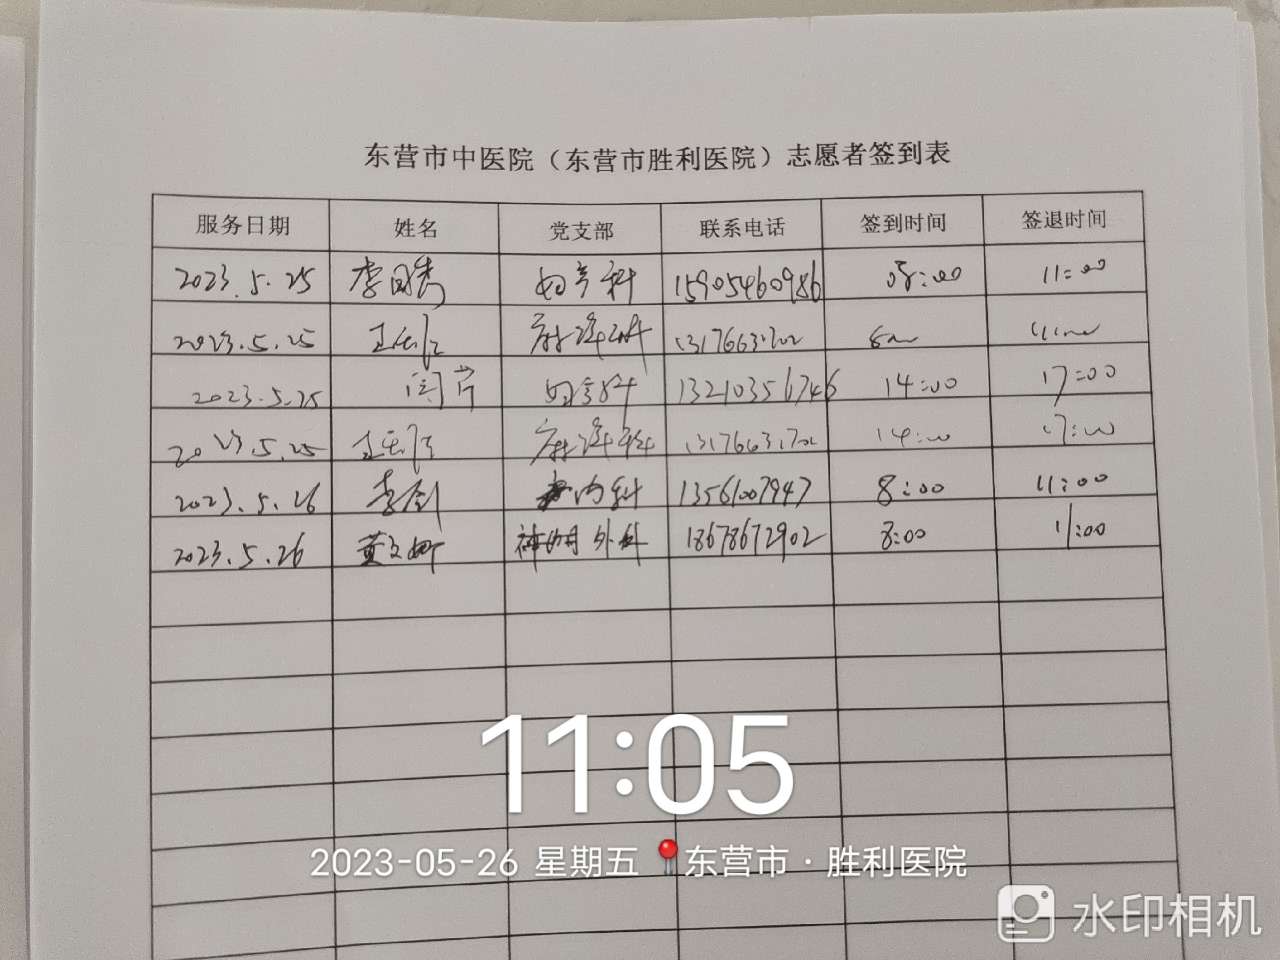 东营市中医院（东营市胜利医院）志愿者签到表
服务日期 姓名 党支部 联系电话 签到时间 签退时间
2023.5.25 李国秀 妇产科 15905460986 08:00 11:00
2023.5.25 麻醉科 8 11:00
2023.5.25 闫芹 妇产科 13210356746 14:00 17:00
2023.5.25 麻醉科 14:00 17:00
2023.5.26 李剑 内科 13561007947 8:00 11:00
2023.5.26 黄文娜 神经外科 18678672902 8:00 11:00
11:05
2023-05-26 星期五 东营市·胜利医院
水印相机